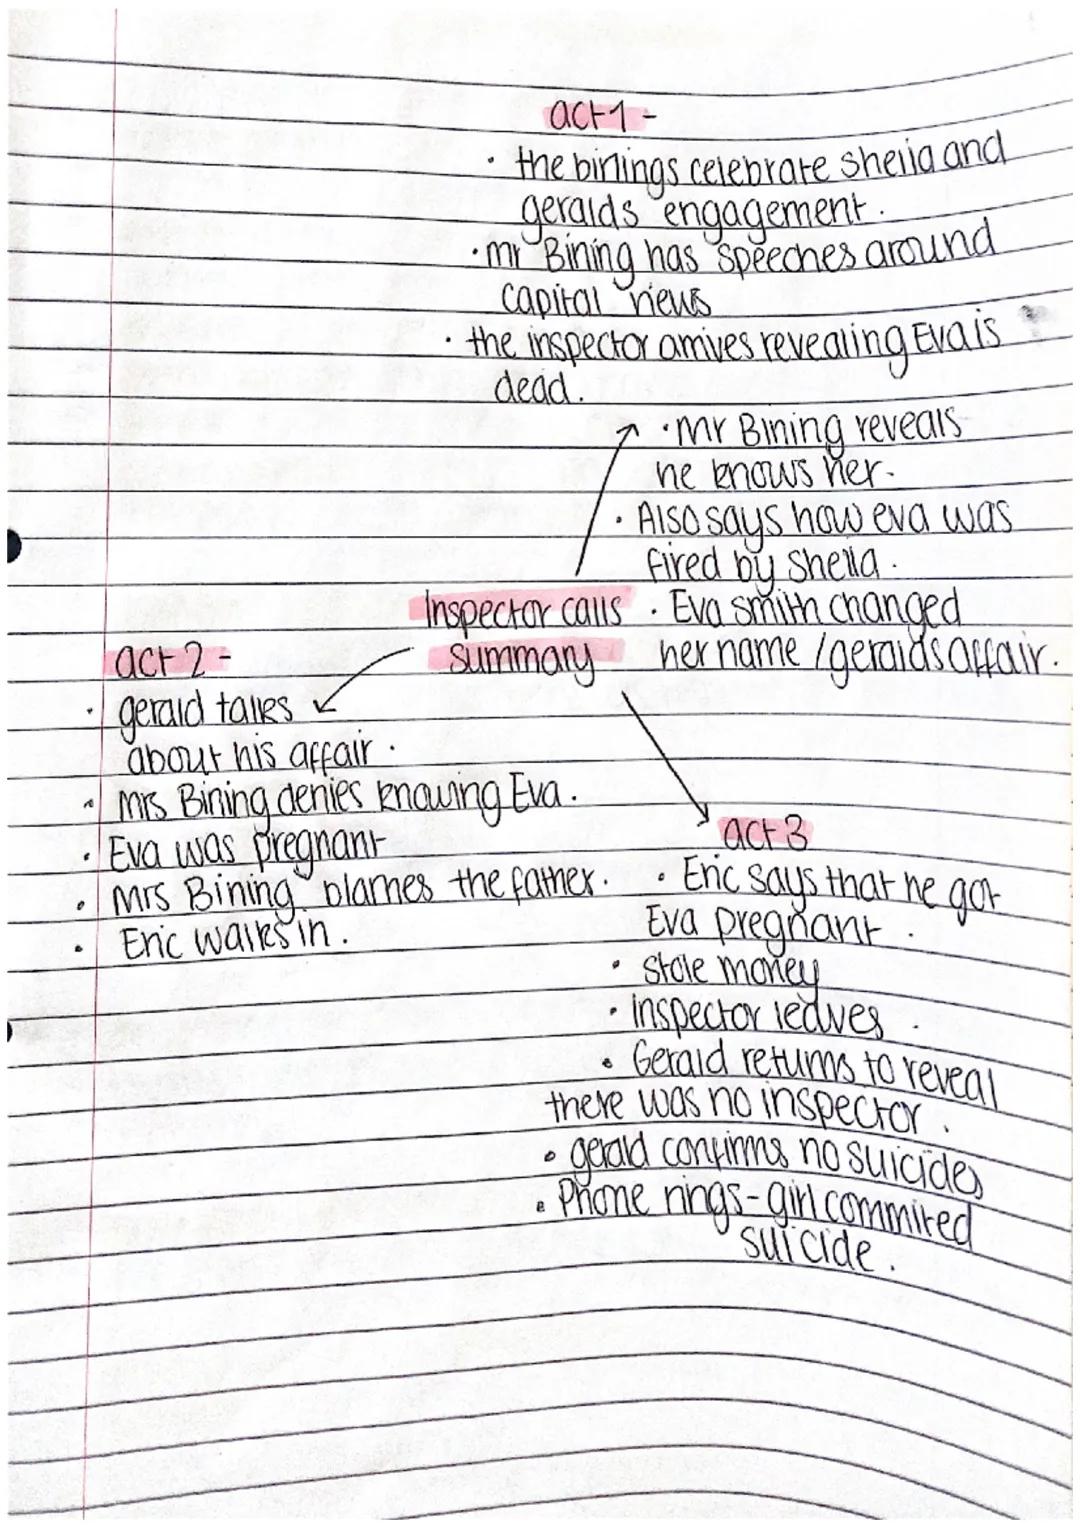 act 1 -
· the birlings celebrate sheila and
geralds engagement.
· mr Birling has speeches around
capital views
· the inspector arrives revealing Eva is
dead.
· Mr Birling reveals
he knows her.
· Also says how eva was
fired by Sheila.
· Eva smith changed
her name / geralds affair.
Inspector calls
summary
act 2 -
· gerald talks
about his affair.
· Mrs Birling denies knowing Eva.
· Eva was pregnant
· Mrs Birling blames the father.
· Eric walks in.
act 3
· Eric says that he got
Eva pregnant.
· stole money
· inspector leaves.
· Gerald returns to reveal
there was no inspector.
· gerald confirms no suicides
· Phone rings - girl commited
suicide.